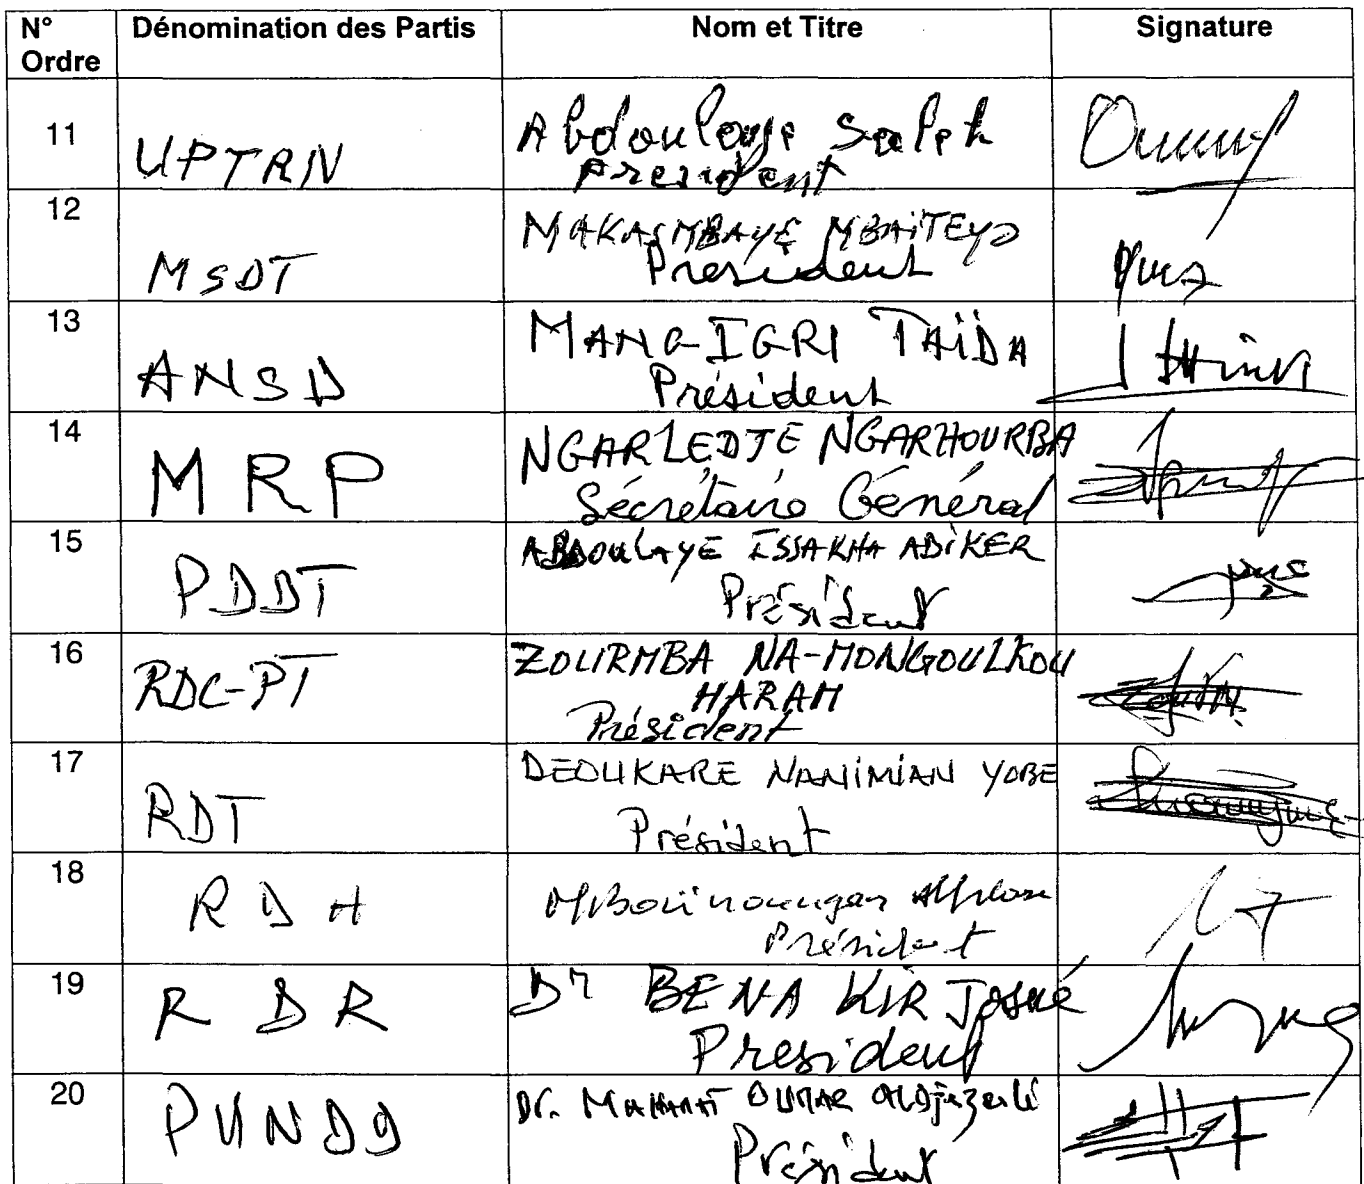 N° Ordre | Dénomination des Partis | Nom et Titre | Signature
11 | UPTRN | Abdoulaye Saleh
President
12 | MSDT | MAKASMBAYE MBAÏTEYO
President
13 | ANSD | MANG-IGRI TAÏDA
Président
14 | MRP | NGARLEDJE NGARHOURBA
Sécrétaire Général
15 | PDDT | ABDOULAYE ISSAKHA ADIKER
Président
16 | RDC-PT | ZOURMBA NA-MONGOULKOU
HARAM
Président
17 | RDT | DEOUKARE NANIMIAN YOBE
Président
18 | RDH
Président
19 | RDR | Dr BENA KIR Josué
President
20 | Dr. MAHAMAT OUMAR
Président